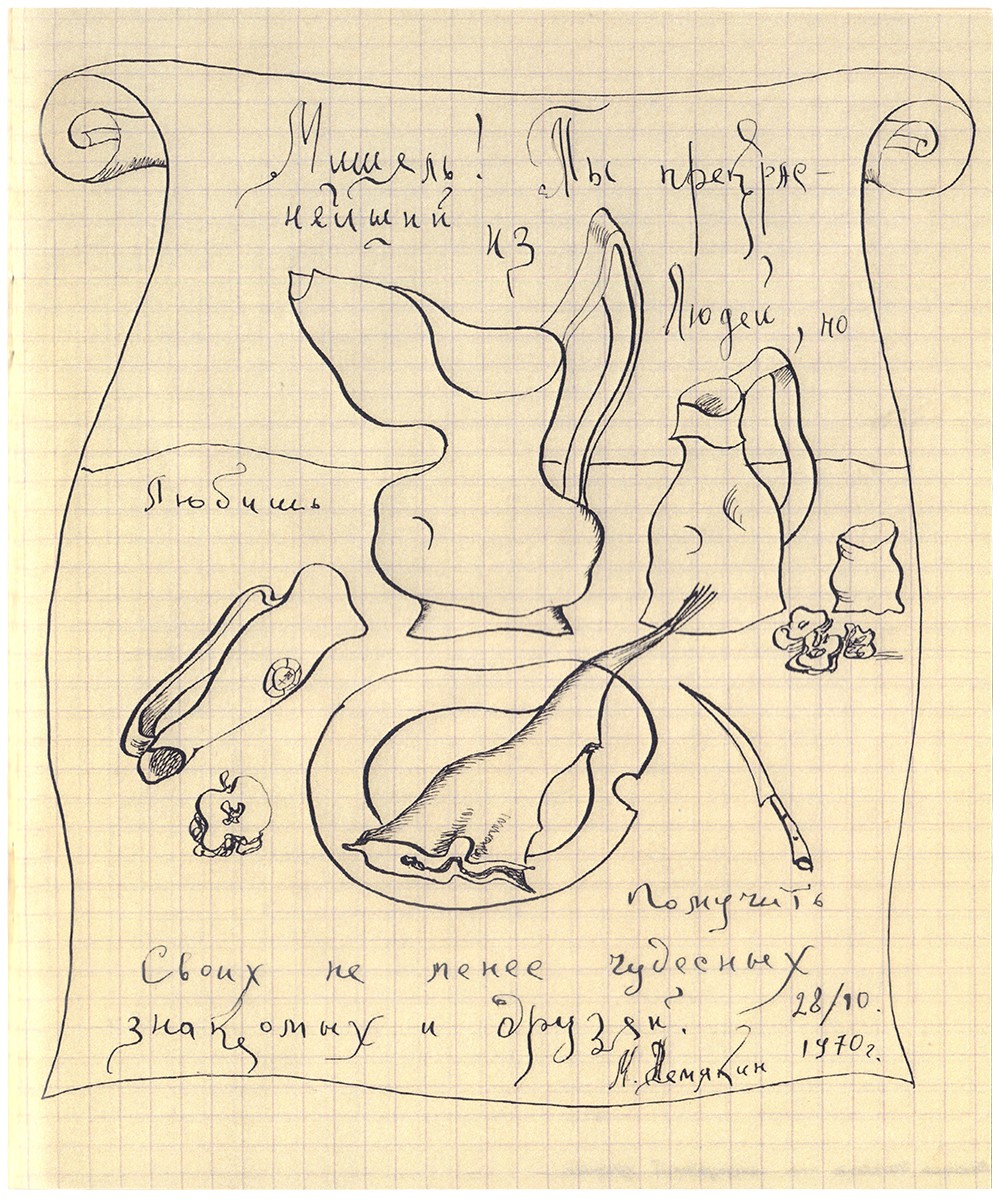 Мишель! Ты прекрас-
нейший из
людей, но
Любишь
помучить
Своих не менее чудесных
знакомых и друзей.
28/10.
1970г.
М. Шемякин